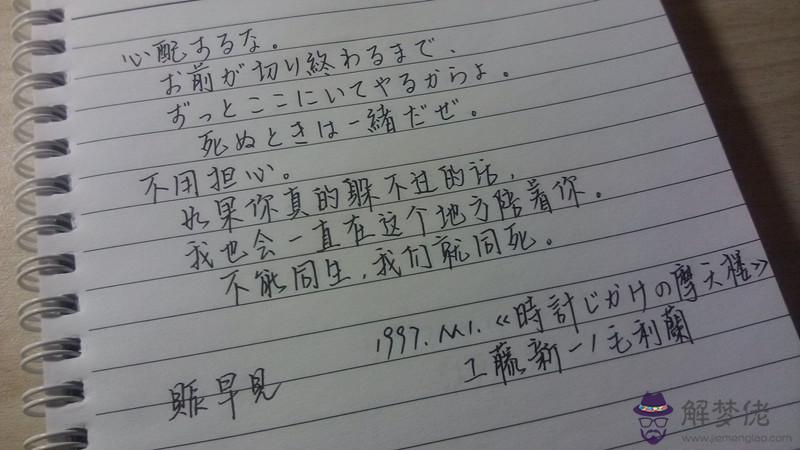 心配するな。
お前が切り終わるまで、
ずっとここにいてやるからよ。
死ぬときは一緒だぜ。
不用担心。
如果你真的躲不过的话，
我也会一直在这个地方陪着你。
不能同生，我们就同死。
1997. M1.《時計じかけの摩天楼》
工藤新一/毛利蘭
賬早見
解梦佬
www.jiemenglao.com